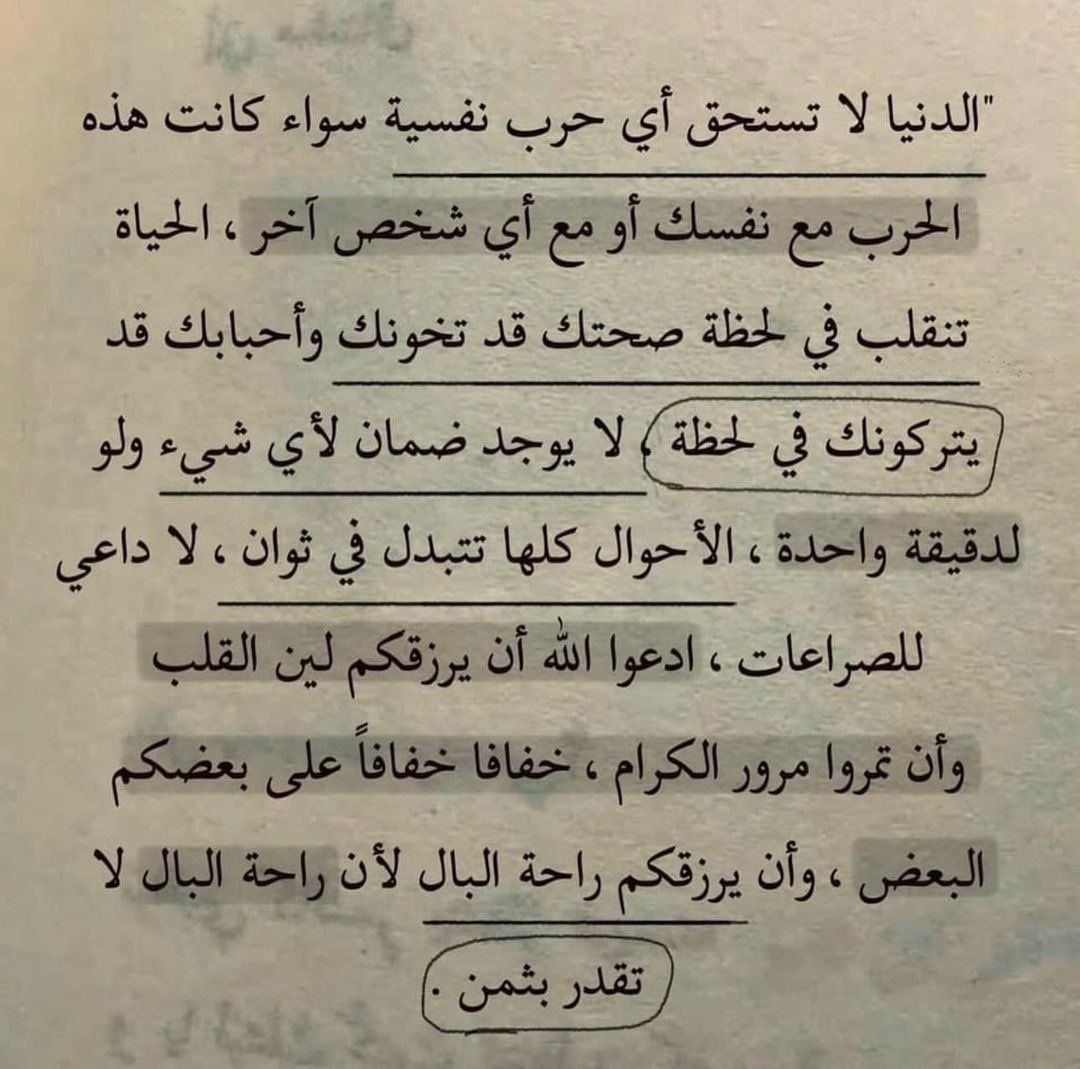 "الدنيا لا تستحق أي حرب نفسية سواء كانت هذه
الحرب مع نفسك أو مع أي شخص آخر ، الحياة
تنقلب في لحظة صحتك قد تخونك وأحبابك قد
يتركونك في لحظة ، لا يوجد ضمان لأي شيء ولو
لدقيقة واحدة ، الأحوال كلها تتبدل في ثوان ، لا داعي
للصراعات ، ادعوا الله أن يرزقكم لين القلب
وأن تمروا مرور الكرام ، خفافا خفافاً على بعضكم
البعض ، وأن يرزقكم راحة البال لأن راحة البال لا
تقدر بثمن .